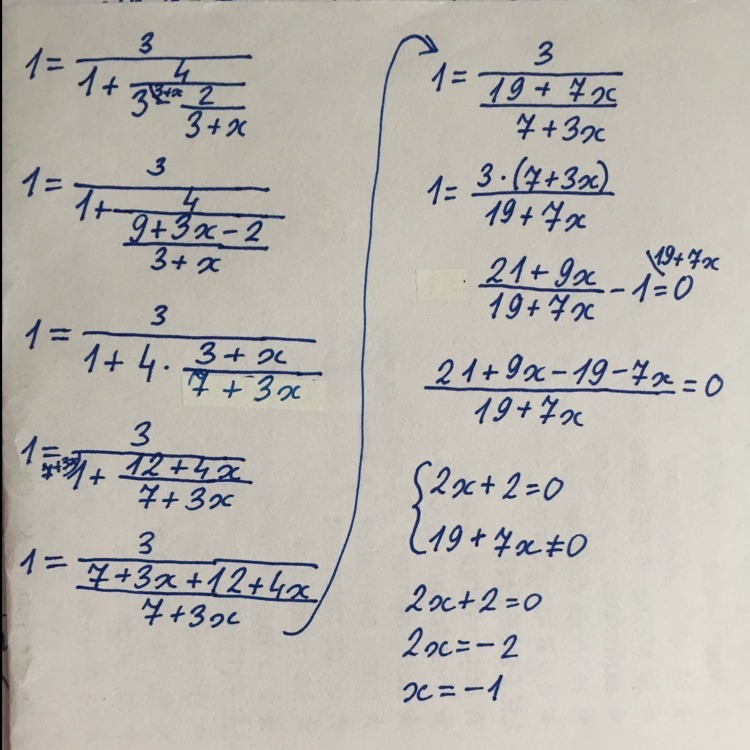 1 = 3/(1 + 4/(3^{\3+x} - 2/(3 + x)))
1 = 3/(1 + 4/((9 + 3x - 2)/(3 + x)))
1 = 3/(1 + 4 · (3 + x)/(7 + 3x))
1 = 3/(^{7+3x/}1 + (12 + 4x)/(7 + 3x))
1 = 3/((7 + 3x + 12 + 4x)/(7 + 3x))
1 = 3/((19 + 7x)/(7 + 3x))
1 = 3·(7 + 3x)/(19 + 7x)
(21 + 9x)/(19 + 7x) - 1^{\19+7x} = 0
(21 + 9x - 19 - 7x)/(19 + 7x) = 0
{ 2x + 2 = 0
19 + 7x ≠ 0
2x + 2 = 0
2x = -2
x = -1